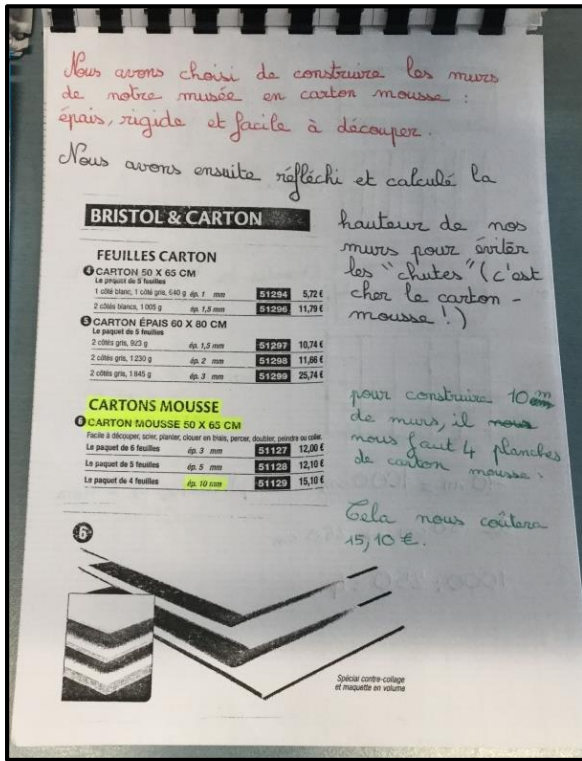 Nous avons choisi de construire les murs
de notre musée en carton mousse :
épais, rigide et facile à découper.
Nous avons ensuite réfléchi et calculé la
hauteur de nos
murs pour éviter
les "chutes" (c'est
cher le carton -
mousse !)
BRISTOL & CARTON
FEUILLES CARTON
4 CARTON 50 X 65 CM
Le paquet de 5 feuilles
1 côté blanc, 1 côté gris, 640 g ép. 1 mm 51294 5,72 €
2 côtés blancs, 1 005 g ép. 1,5 mm 51296 11,79 €
5 CARTON ÉPAIS 60 X 80 CM
Le paquet de 5 feuilles
2 côtés gris, 923 g ép. 1,5 mm 51297 10,74 €
2 côtés gris, 1 230 g ép. 2 mm 51298 11,66 €
2 côtés gris, 1 845 g ép. 3 mm 51299 25,74 €
CARTONS MOUSSE
6 CARTON MOUSSE 50 X 65 CM
Facile à découper, scier, planter, clouer en biais, percer, doubler, peindre ou coller.
Le paquet de 6 feuilles ép. 3 mm 51127 12,00 €
Le paquet de 5 feuilles ép. 5 mm 51128 12,10 €
Le paquet de 4 feuilles ép. 10 mm 51129 15,10 €
pour construire 10 m
de murs, il
nous faut 4 planches
de carton mousse.
Cela nous coûtera
15,10 €.
6
Spécial contre-collage
et maquette en volume